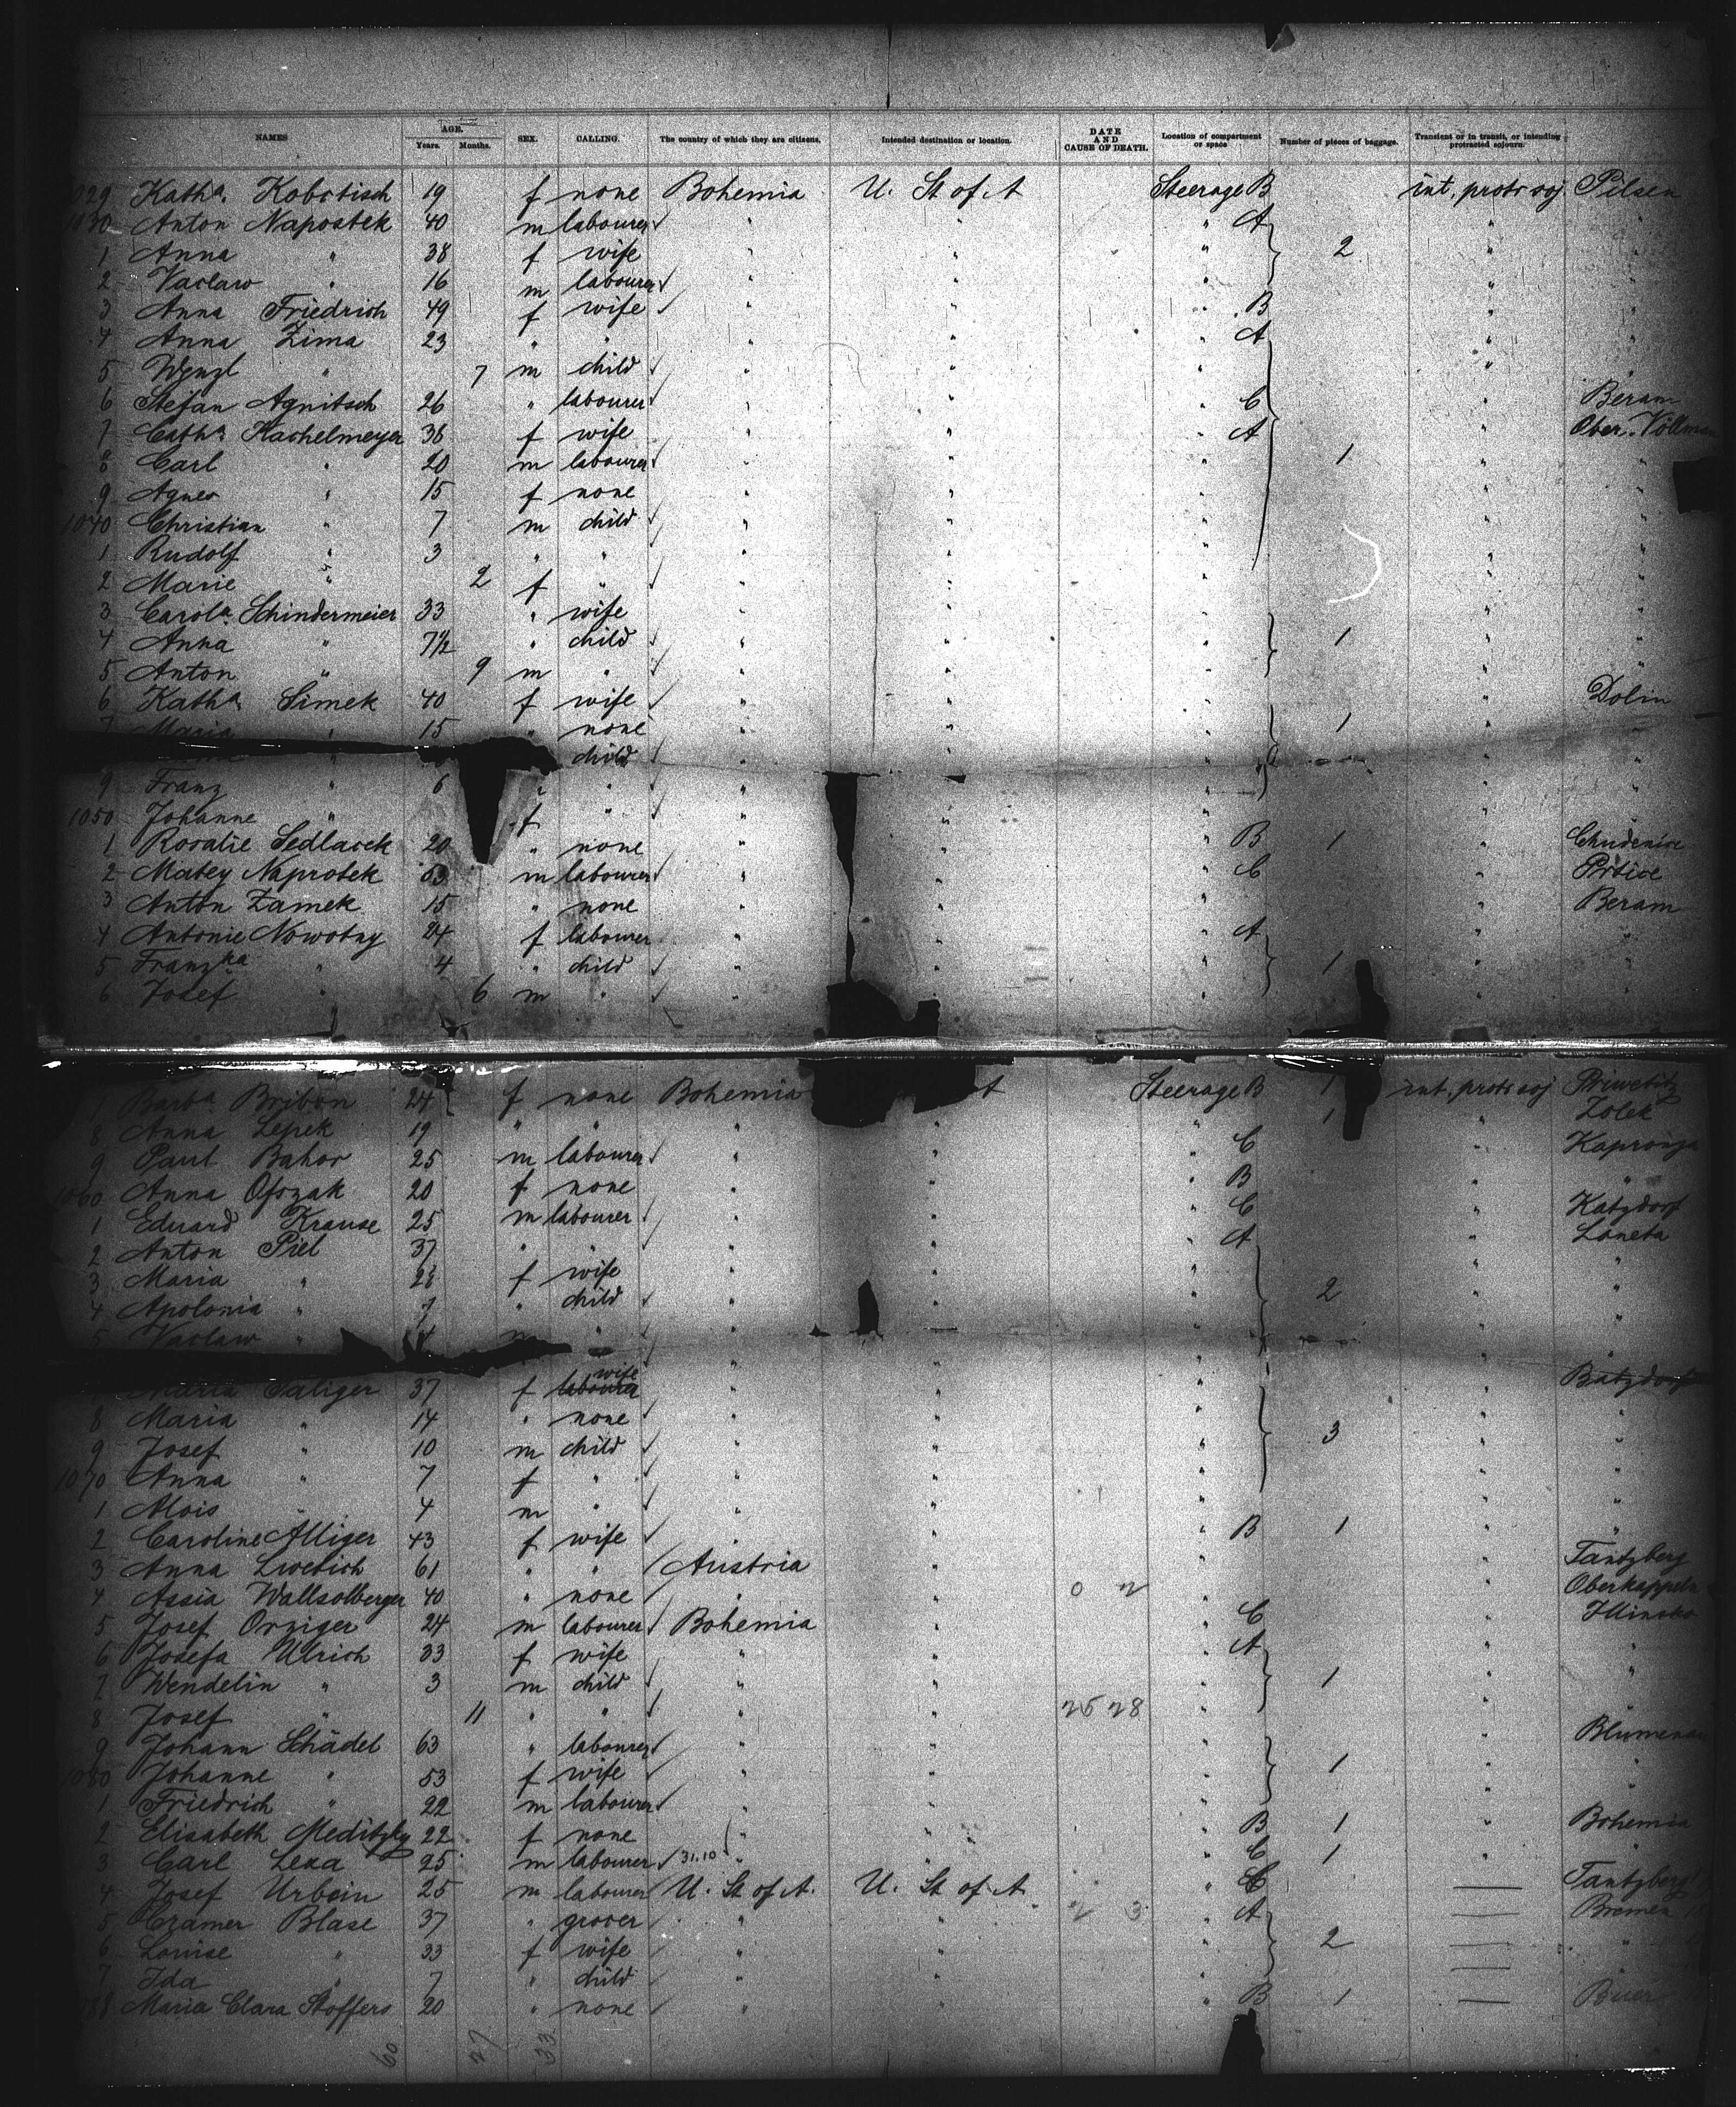 NAMES AGE. Years. Months. SEX. CALLING. The country of which they are citizens. Intended destination or location. DATE AND CAUSE OF DEATH. Location of compartment or space Number of pieces of baggage. Transient or in transit, or intending protracted sojourn.
Kath.a Kobrtisch 19 f none Bohemia U. St of A Steerage B int. protr soj Pilsen
1030 Anton Napostek 40 m labourer " " " A "
1 Anna " 38 f wife " " " 2 "
2 Vaclaw " 16 m labourer " " " "
3 Anna Friedrich 49 f wife " " " B "
4 Anna Zima 23 " " " " " A "
5 Wenzl " 7 m child " " " "
6 Stefan Agnitsch 26 " labourer " " " C " Beram
7 Cath.a Hachelmeyer 38 f wife " " " A " Ober.
8 Carl " 20 m labourer " " " 1 " "
9 Agnes " 15 f none " " " " "
1040 Christian " 7 m child " " " " "
1 Rudolf " 3 " " " " " " "
2 Marie " 2 f " " " " " "
3 Carol.a Schindermeier 33 " wife " " " " "
4 Anna " 7½ " child " " " 1 " "
5 Anton " 9 m " " " " " "
6 Kath.a Simek 40 f wife " " " " Dolin
7 Maria " 15 " none " " " 1 " "
child " " " " "
9 Franz " 6 " " " " " "
1050 Johanne " f " " " " " "
1 Rosalie Sedlacek 20 " none " " " B 1 " Chudenice
2 Matey Naprstek m labourer " " " C "
3 Anton Zamek 15 " none " " " " Beram
4 Antonie Nowotny 24 f labourer " " " A " "
5 Franzka " 4 " child " " " 1 " "
6 Josef " 6 m " " " " " "
7 Barb.a 24 f none Bohemia A Steerage B 1 int. protr soj
8 Anna Lepek 19 " " " " " 1 " Zolek
9 Paul Bahor 25 m labourer " " " C "
1060 Anna 20 f none " " " B " "
1 Eduard Krause 25 m labourer " " " C " Katzdorf
2 Anton Piel 37 " " " " " A " Loneta
3 Maria " 28 f wife " " " 2 " "
4 Apolonia " 7 " child " " " " "
5 Vaclaw " m " " " " "
Maria Saliger 37 f wife " " " " Batzdorf
8 Maria " 14 " none " " " " "
9 Josef " 10 m child " " " 3 " "
1070 Anna " 7 f " " " " " "
1 Alois " 4 m " " " " " "
2 Caroline Alliger 43 f wife " " " B 1 " "
3 Anna 61 " " Austria " " " Tantzberg
4 Assia Wallsolberger 40 " none " " " " Oberkappeln
5 Josef Orziger 24 m labourer Bohemia " " C "
6 Josefa Ulrich 33 f wife " " " A " "
7 Wendelin " 3 m child " " " 1 " "
8 Josef " 11 " " " " 25 28 " "
9 Johann Schädel 63 " labourer " " " " Blumenau
1080 Johanne " 53 f wife " " " 1 " "
1 Friedrich " 22 m labourer " " " " "
2 Elisabeth 22 f none " " " B 1 " Bohemia
3 Carl Lexa 25 m labourer 31.10 " " " C 1 " "
4 Josef Urbain 25 m labourer U. St of A. U. St of A " C — Tantzberg
5 Cramer Blase 37 " grocer " " 2 3 " A — Bremen
6 Louise " 33 f wife " " " 2 — "
7 Ida " 7 " child " " " —
88 Maria Clara Stoffers 20 " none " " " B 1 — Buer
60 27 33